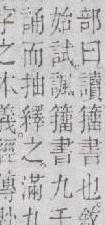 部曰讀籀書也敘
始試諷籀書九千
誦而抽繹之滿九
字之本義經傳